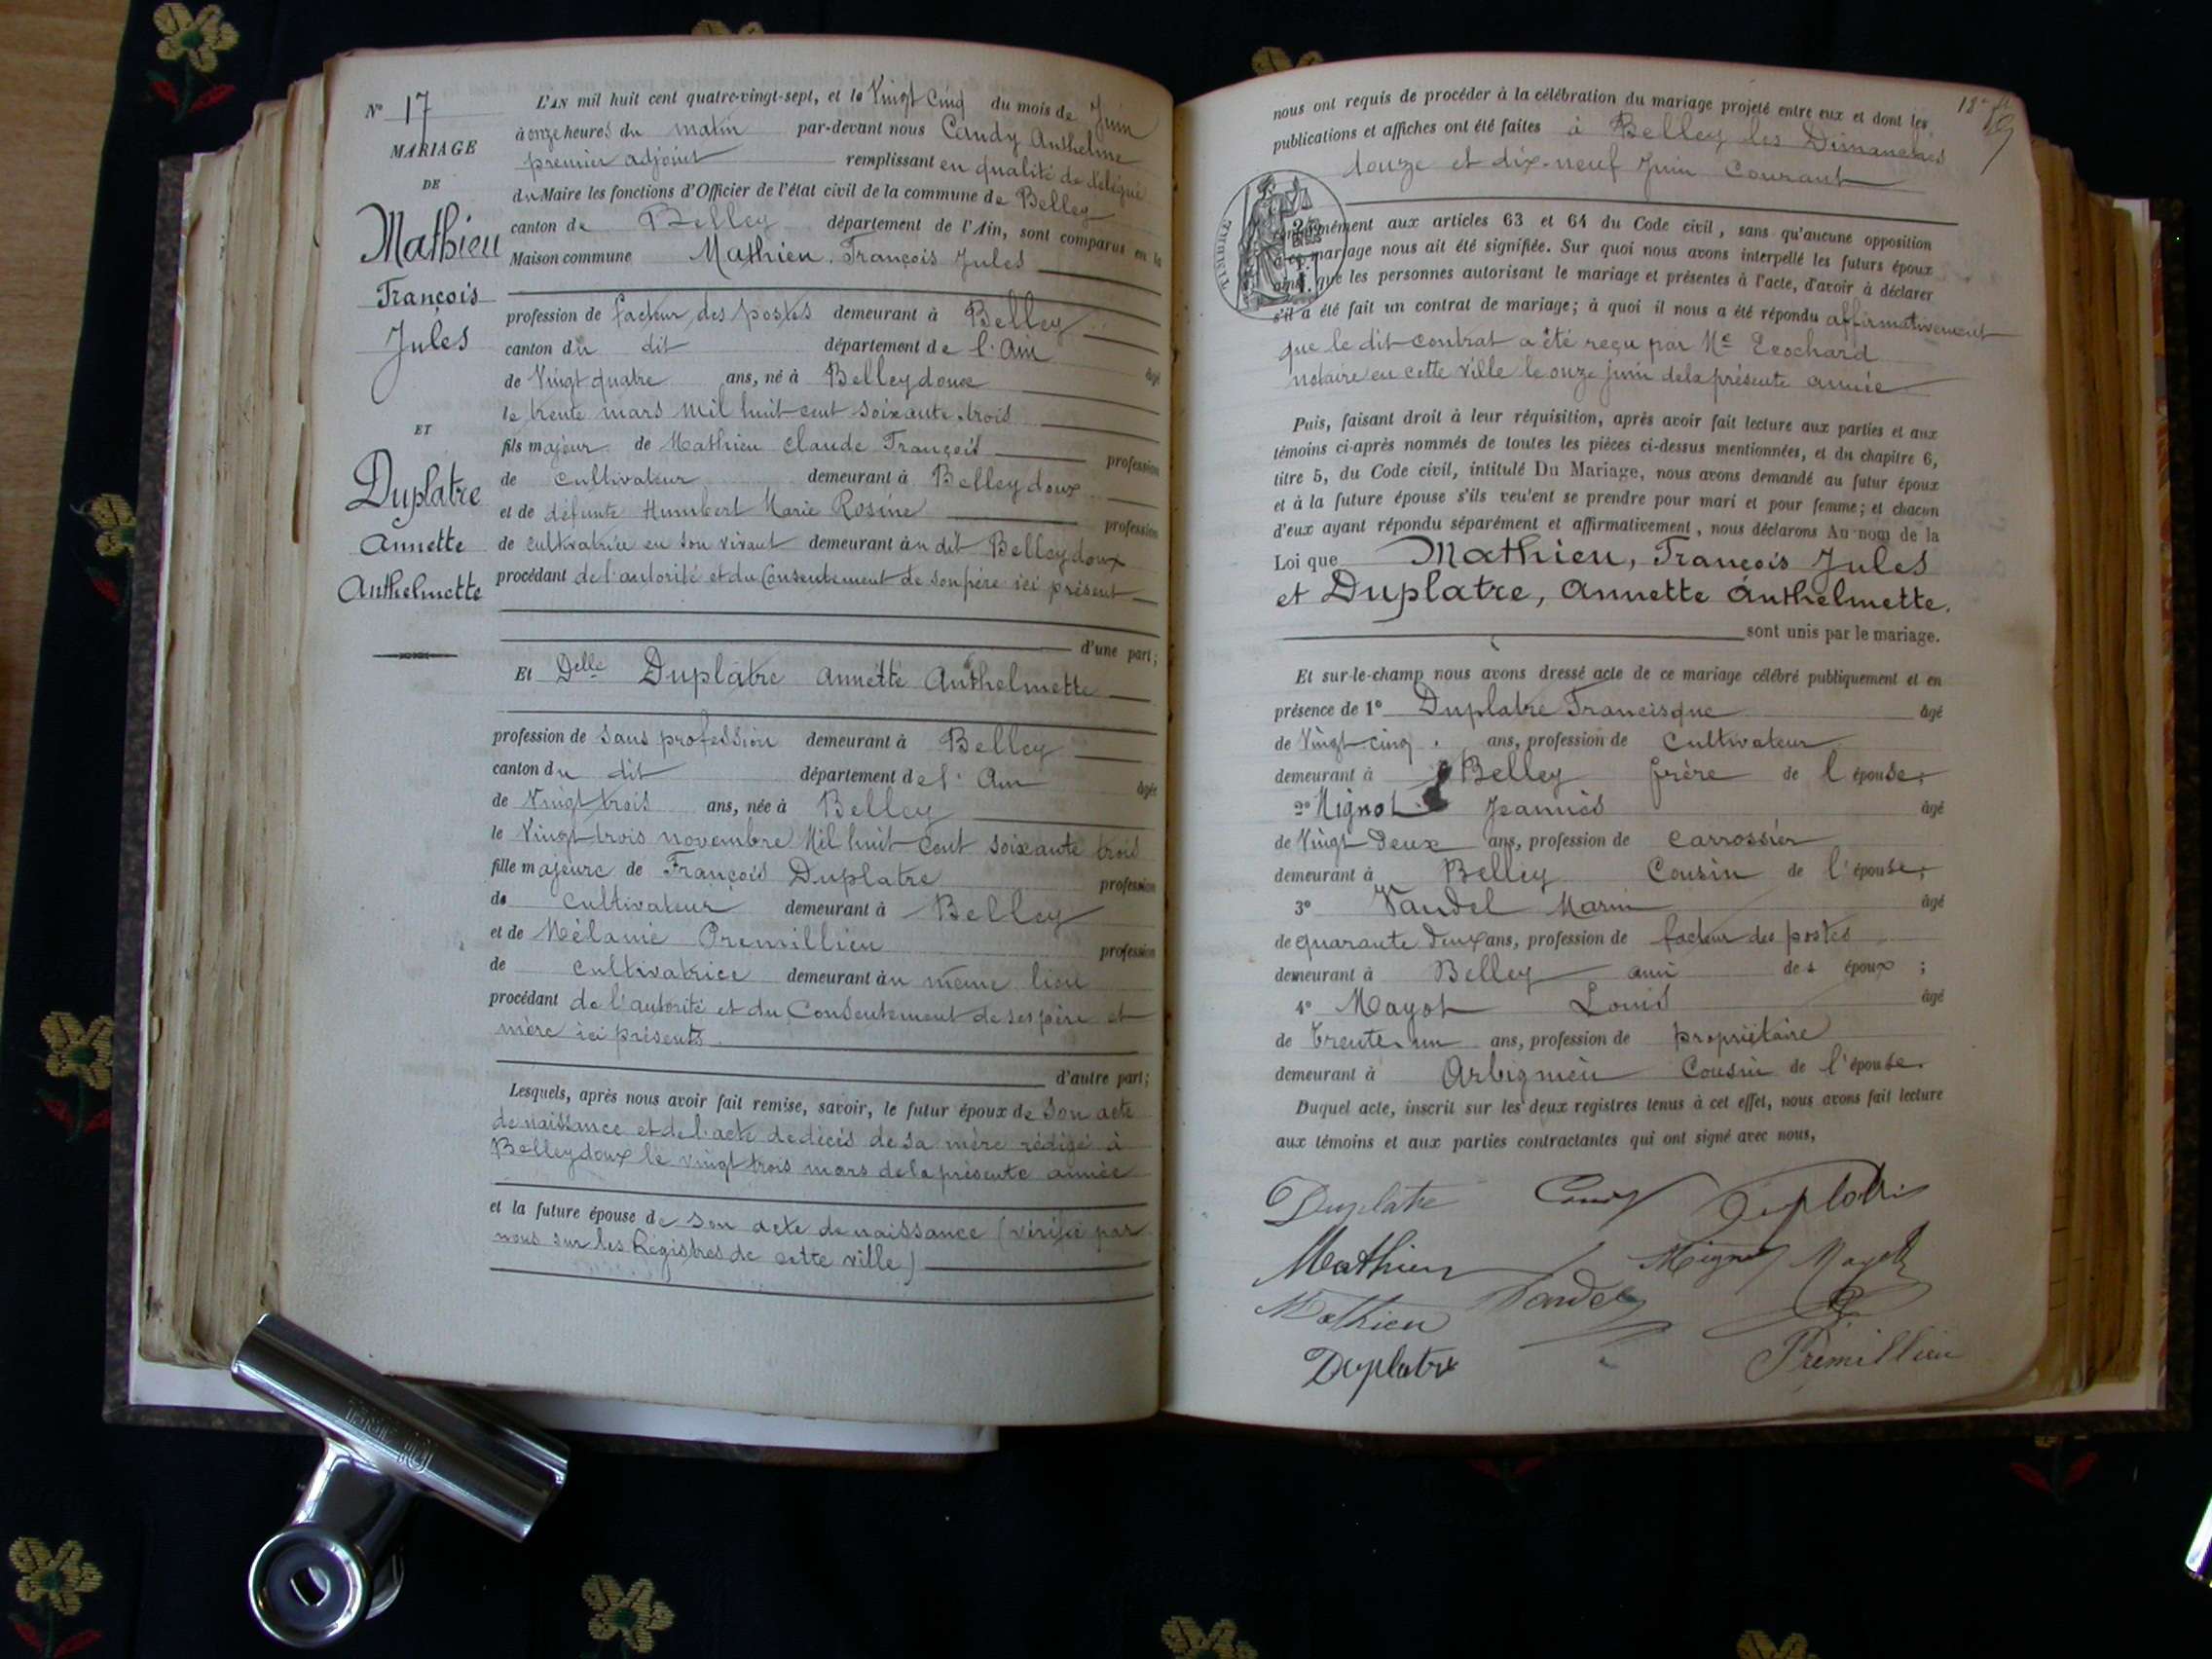 N° 17
MARIAGE
DE
Mathieu
François
Jules
ET
Duplatre
Annette
Anthelmette
L'AN mil huit cent quatre-vingt-sept, et le Vingt Cinq du mois de Juin
à onze heures du matin par-devant nous Candy Anthelme
premier adjoint remplissant en qualité de délégué
du Maire les fonctions d'Officier de l'état civil de la commune de Belley
canton de Belley département de l'Ain, sont comparus en la
Maison commune Mathieu, François Jules
profession de facteur des postes demeurant à Belley
canton du dit département de l'Ain âgé
de Vingt quatre ans, né à Belleydoux
le trente mars mil huit cent soixante trois
fils majeur de Mathieu Claude François profession
de cultivateur demeurant à Belleydoux
et de défunte Humbert Marie Rosine profession
de cultivatrice en son vivant demeurant àu dit Belleydoux
procédant de l'autorité et du Consentement de son père ici présent
d'une part;
Et Delle Duplâtre Annette Anthelmette
profession de sans profession demeurant à Belley
canton du dit département de l'Ain âgée
de Vingt trois ans, née à Belley
le Vingt trois novembre Mil huit Cent soixante trois
fille majeure de François Duplatre profession
de cultivateur demeurant à Belley
et de Mélanie Premillieu profession
de cultivatrice demeurant àu même lieu
procédant de l'autorité et du Consentement de ses père et
mère ici présents
d'autre part;
Lesquels, après nous avoir fait remise, savoir, le futur époux de son acte
de naissance et de l'acte de décès de sa mère rédigé à
Belleydoux le vingt trois mars de la présente année
et la future épouse de son acte de naissance (vérifié par
nous sur les Régistres de cette ville)
nous ont requis de procéder à la célébration du mariage projeté entre eux et dont les
publications et affiches ont été faites à Belley les Dimanches
douze et dix-neuf Juin Courant
TIMBRE
conformément aux articles 63 et 64 du Code civil, sans qu'aucune opposition
à ce mariage nous ait été signifiée. Sur quoi nous avons interpellé les futurs époux
ainsi que les personnes autorisant le mariage et présentes à l'acte, d'avoir à déclarer
s'il a été fait un contrat de mariage; à quoi il nous a été répondu affirmativement
que le dit contrat a été reçu par Me
notaire en cette ville le onze juin de la présente année
Puis, faisant droit à leur réquisition, après avoir fait lecture aux parties et aux
témoins ci-après nommés de toutes les pièces ci-dessus mentionnées, et du chapitre 6,
titre 5, du Code civil, intitulé Du Mariage, nous avons demandé au futur époux
et à la future épouse s'ils veulent se prendre pour mari et pour femme; et chacun
d'eux ayant répondu séparément et affirmativement, nous déclarons Au nom de la
Loi que Mathieu, François Jules
et Duplatre, Annette Anthelmette.
sont unis par le mariage.
Et sur-le-champ nous avons dressé acte de ce mariage célébré publiquement et en
présence de 1° Duplatre Francisque âgé
de Vingt-cinq ans, profession de Cultivateur
demeurant à Belley frère de l'épouse;
2° Mignot Joannès âgé
de Vingt Deux ans, profession de carrossier
demeurant à Belley Cousin de l'épouse;
3° Vandel Marin âgé
de quarante deux ans, profession de facteur des postes
demeurant à Belley ami des époux;
4° Mayot Louis âgé
de trente un ans, profession de propriétaire
demeurant à Arbignieu Cousin de l'épouse.
Duquel acte, inscrit sur les deux registres tenus à cet effet, nous avons fait lecture
aux témoins et aux parties contractantes qui ont signé avec nous,
Duplatre Candy Duplatre
Mathieu Mignot Mayot
Mathieu Vandel
Duplatre Prémillieu